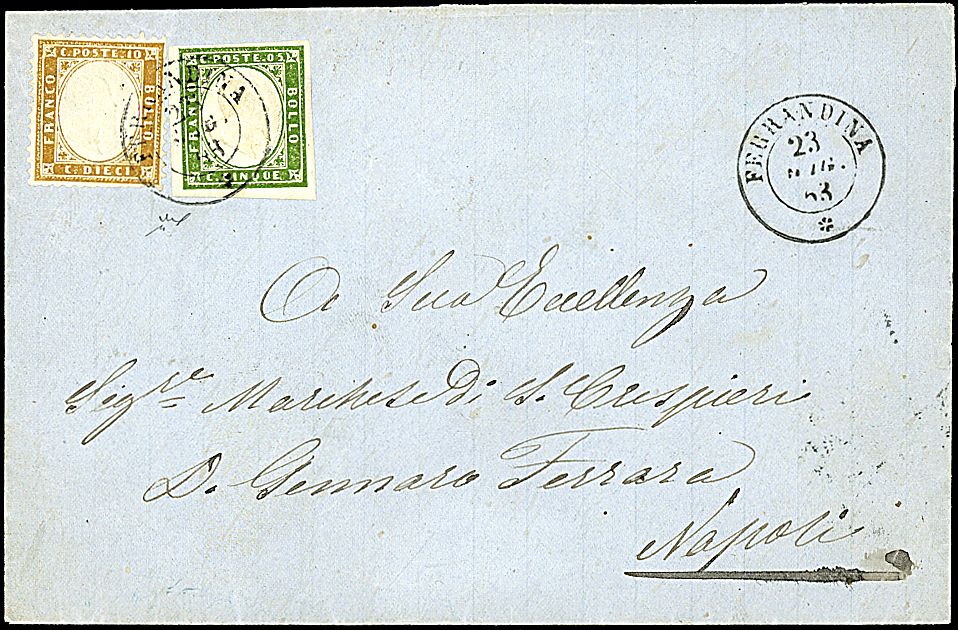 C. POSTE. 10
FRANCO
BOLLO
C. DIECI
C. POSTE. 05
FRANCO
BOLLO
C. CINQUE
FERRANDINA
23
63
A Sua Eccellenza
Sigr. Marchese Di S. Crespieri
D. Gennaro Ferrara
Napoli